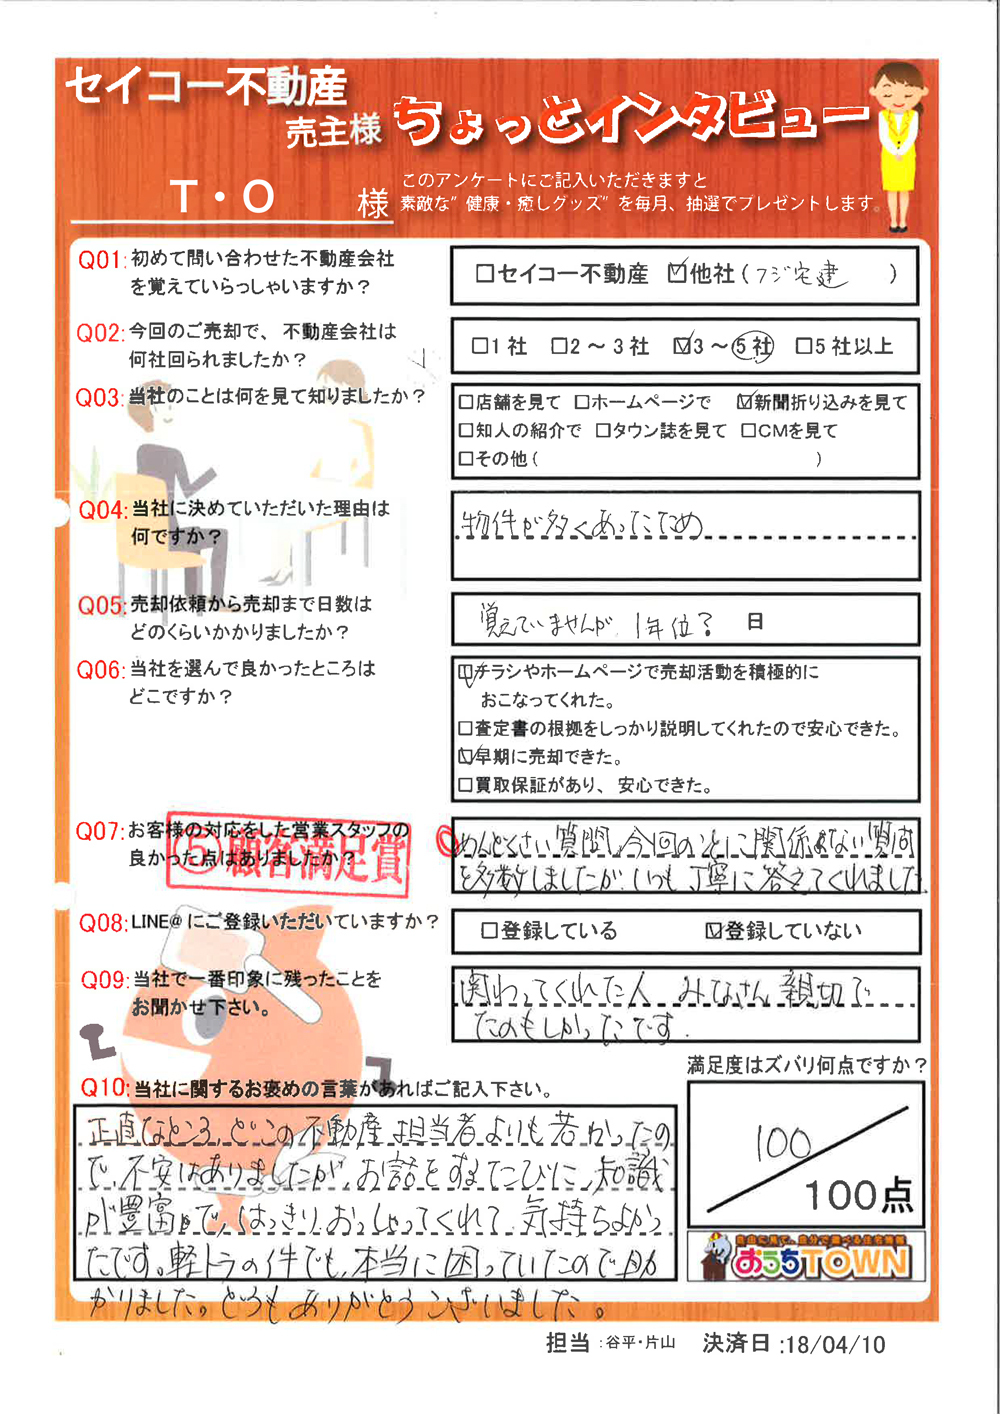 セイコー不動産
売主様 ちょっとインタビュー
T・O 様
このアンケートにご記入いただきますと
素敵な“健康・癒しグッズ”を毎月、抽選でプレゼントします。
Q01:初めて問い合わせた不動産会社
を覚えていらっしゃいますか？
□セイコー不動産 ☑他社(フジ宅建 )
Q02:今回のご売却で、不動産会社は
何社回られましたか？
□1社 □2～3社 ☑3～5社 □5社以上
Q03:当社のことは何を見て知りましたか？
□店舗を見て □ホームページで ☑新聞折り込みを見て
□知人の紹介で □タウン誌を見て □CMを見て
□その他( )
Q04:当社に決めていただいた理由は
何ですか？
物件が多くあったため
Q05:売却依頼から売却まで日数は
どのくらいかかりましたか？
覚えていませんが、1年位? 日
Q06:当社を選んで良かったところは
どこですか？
☑チラシやホームページで売却活動を積極的に
おこなってくれた。
□査定書の根拠をしっかり説明してくれたので安心できた。
☑早期に売却できた。
□買取保証があり、安心できた。
Q07:お客様の対応をした営業スタッフの
良かった点はありましたか？
⑤顧客満足賞
めんどくさい質問、今回のことに関係ない質問
を多数しましたが、いつも丁寧に答えてくれました
Q08:LINE@にご登録いただいていますか？
□登録している ☑登録していない
Q09:当社で一番印象に残ったことを
お聞かせ下さい。
関わってくれた人 みなさん親切で
たのもしかったです.
Q10:当社に関するお褒めの言葉があればご記入下さい。
正直なところ、どこの不動産担当者よりも若かったの
で、不安はありましたが、お話をするたびに、知識
が豊富で、はっきりおっしゃってくれて、気持ちよかっ
たです。軽トラの件でも、本当に困っていたので助
かりました。どうもありがとうございました。
満足度はズバリ何点ですか？
100
100点
自由に見て、自分で選べる住宅情報
おうちTOWN
担当:谷平・片山 決済日:18/04/10